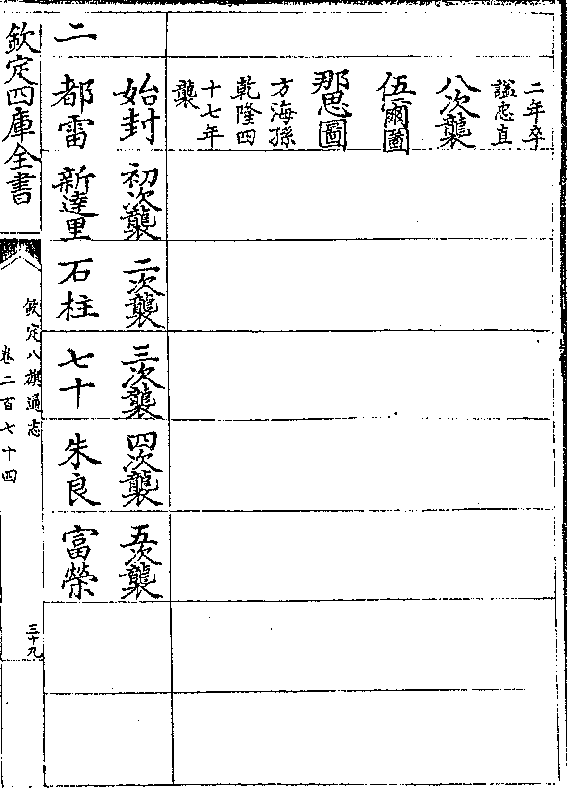 二年卒
諡忠直
八次襲
伍爾圖
那思圖
方海孫
乾隆四
十七年
襲
始封
初次襲
二次襲
三次襲
四次襲
五次襲
二
都雷
新達里
石柱
七十
朱良
富榮
欽定四庫全書
欽定八旗通志
卷二百七十四
三十九